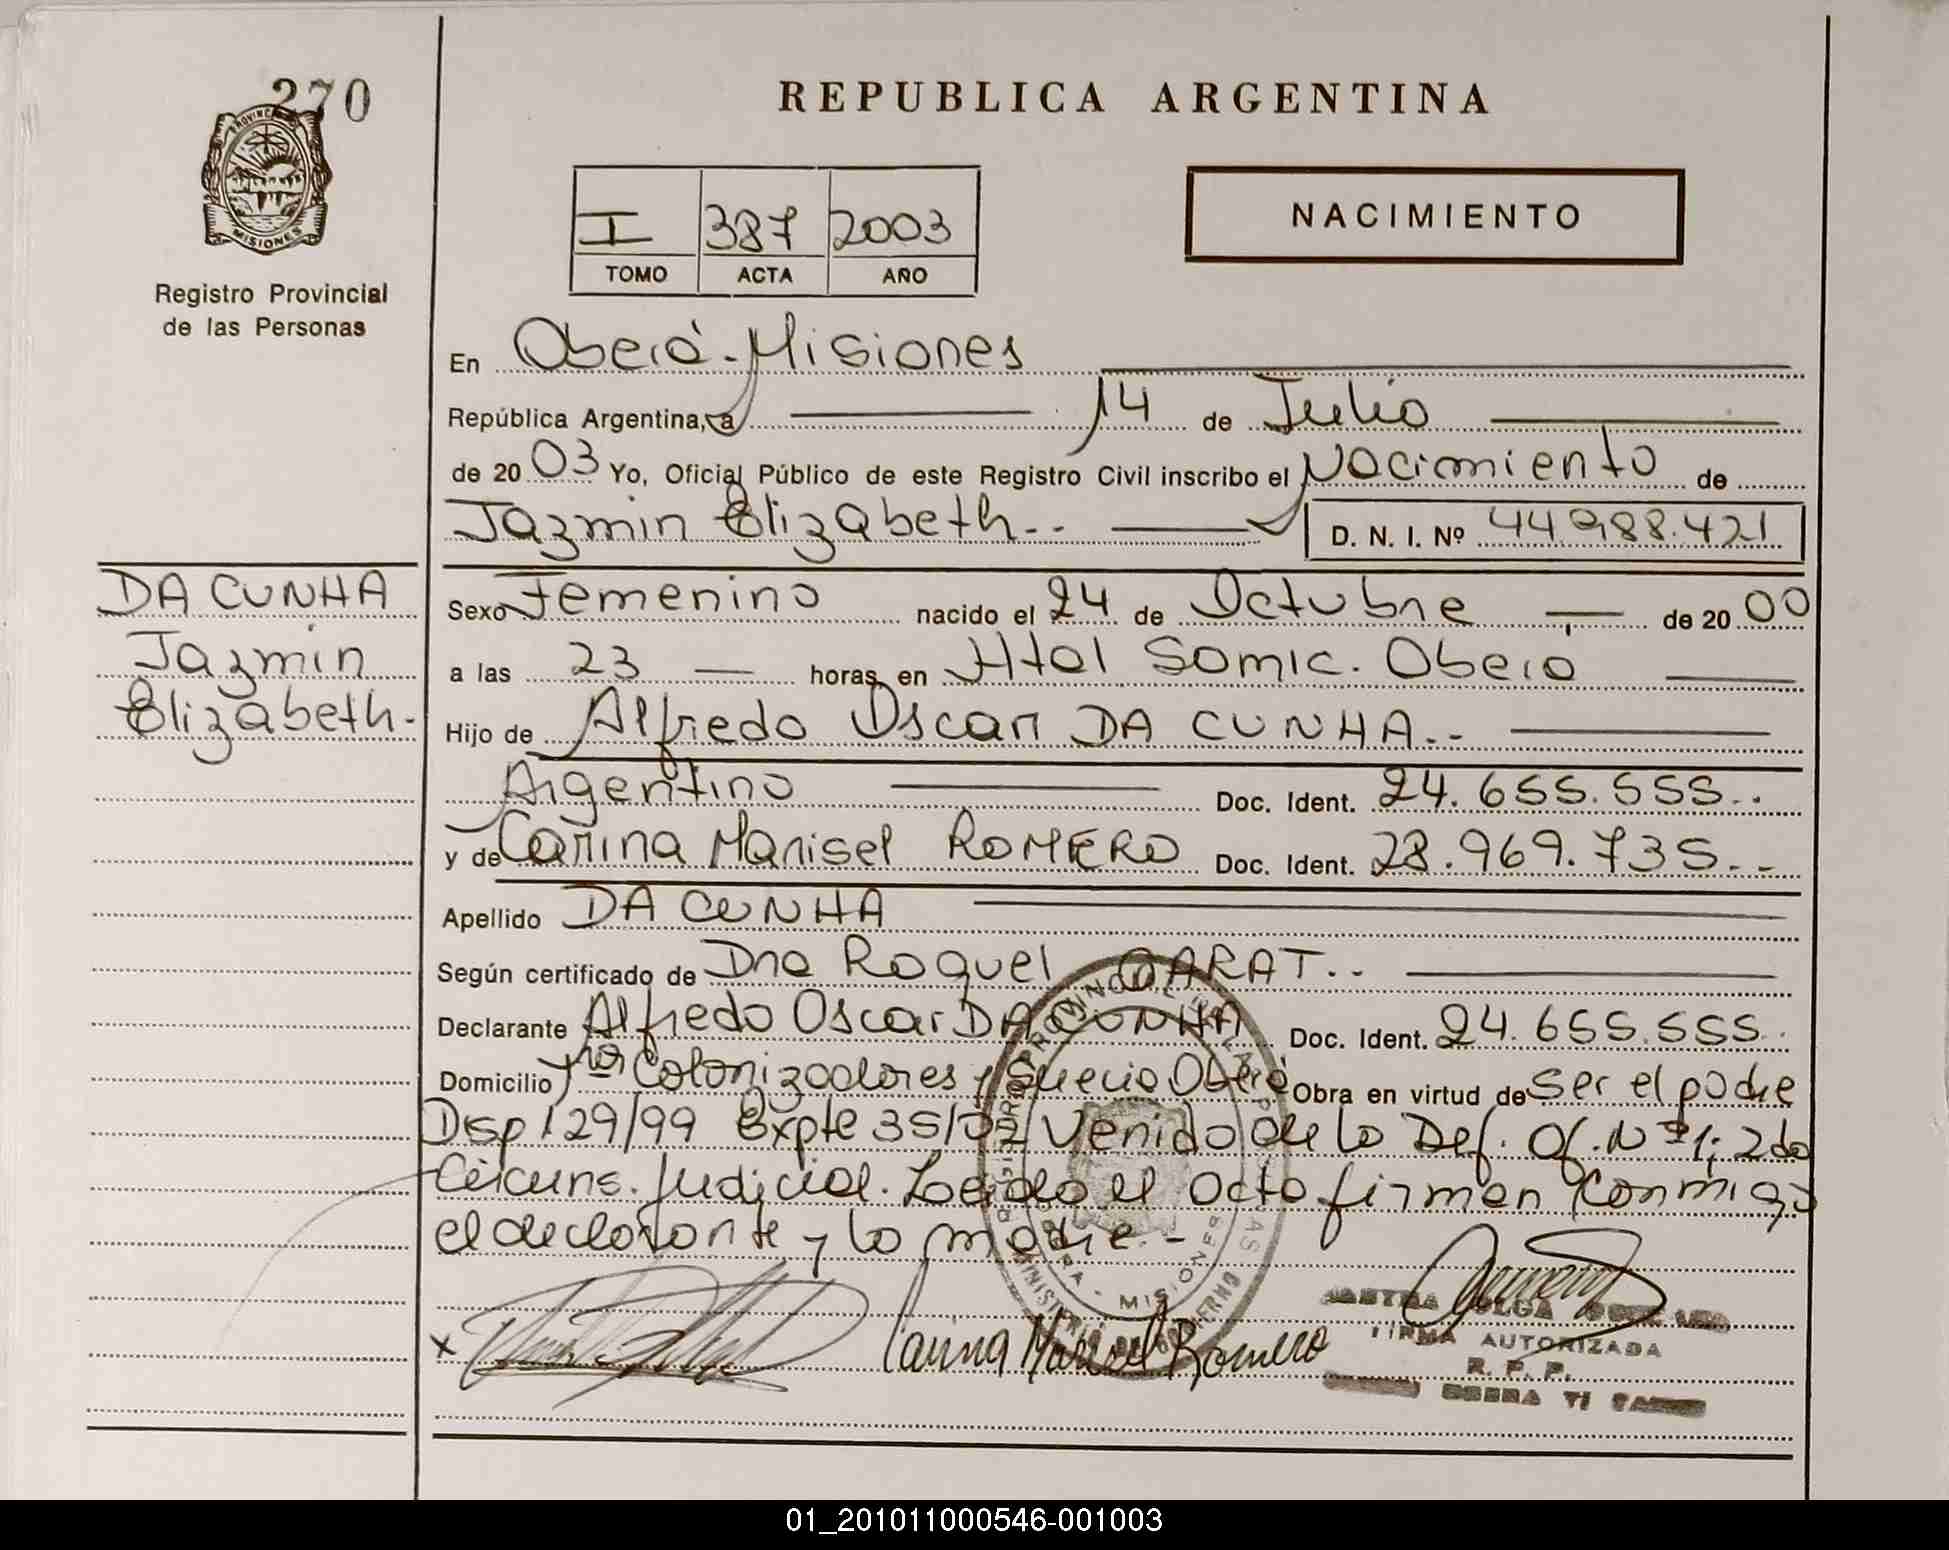 270
PROVINCIA
MISIONES
Registro Provincial
de las Personas
REPUBLICA ARGENTINA
I 387 2003
TOMO ACTA AÑO
NACIMIENTO
En Oberá - Misiones
República Argentina, a 14 de Julio
de 2003 Yo, Oficial Público de este Registro Civil inscribo el Nacimiento de
Jazmin Elizabeth..
D. N. I. Nº 44.988.421
DA CUNHA
Jazmin
Elizabeth.-
Sexo Femenino nacido el 24 de Octubre de 2000
a las 23 horas en Htal Samic. Oberá
Hijo de Alfredo Oscar DA CUNHA..
Argentino Doc. Ident. 24.655.555..
y de Carina Marisel ROMERO Doc. Ident. 28.969.735..
Apellido DA CUNHA
Según certificado de Dra Raquel GARAT..
Declarante Alfredo Oscar DA CUNHA Doc. Ident. 24.655.555.
Domicilio Colonizadores y Suecia Oberá Obra en virtud de ser el padre
Disp 129/99 Expte 35/02 Venido de la Def. Of. Nº 1; 2da
Circuns. Judicial. Leida el acta firman conmigo
el declarante y la madre.-
x
Carina Marisel Romero
FIRMA AUTORIZADA
R. P. P.
MISIONES
01_201011000546-001003